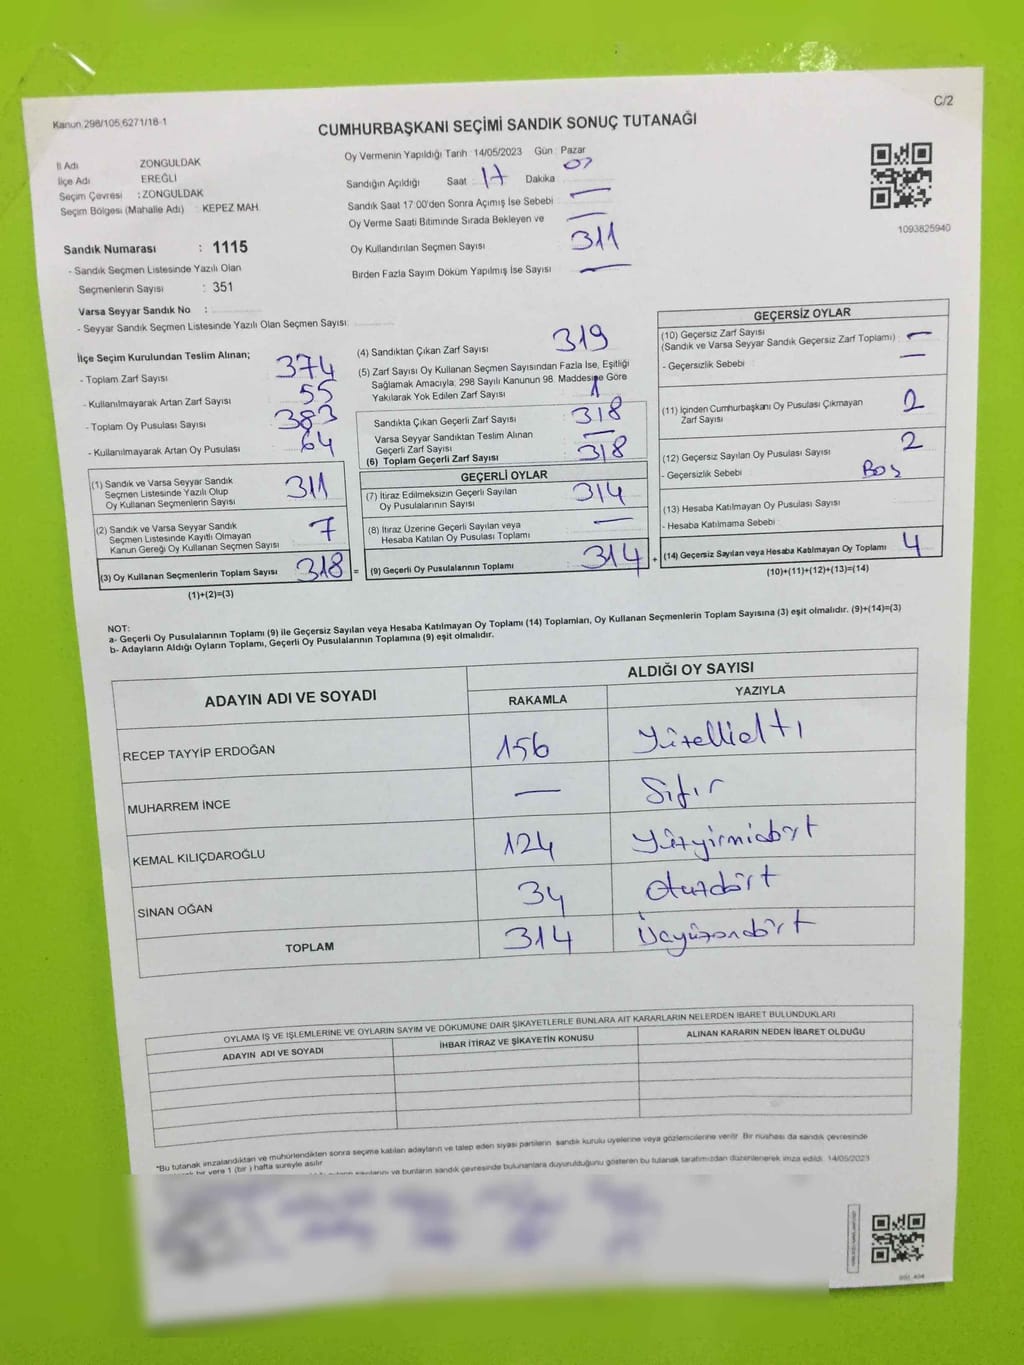 Kanun 298/105,6271/18-1
C/2
CUMHURBAŞKANI SEÇİMİ SANDIK SONUÇ TUTANAĞI
İl Adı ZONGULDAK
İlçe Adı EREĞLİ
Seçim Çevresi : ZONGULDAK
Seçim Bölgesi (Mahalle Adı) KEPEZ MAH.
Sandık Numarası : 1115
- Sandık Seçmen Listesinde Yazılı Olan
Seçmenlerin Sayısı : 351
Varsa Seyyar Sandık No :
- Seyyar Sandık Seçmen Listesinde Yazılı Olan Seçmen Sayısı
Oy Vermenin Yapıldığı Tarih 14/05/2023 Gün : Pazar
Sandığın Açıldığı Saat 17 Dakika 07
Sandık Saat 17:00'den Sonra Açımış İse Sebebi —
Oy Verme Saati Bitiminde Sırada Bekleyen ve —
Oy Kullandırılan Seçmen Sayısı 311
Birden Fazla Sayım Döküm Yapılmış İse Sayısı —
1093825940
İlçe Seçim Kurulundan Teslim Alınan;
- Toplam Zarf Sayısı 374
- Kullanılmayarak Artan Zarf Sayısı 55
- Toplam Oy Pusulası Sayısı 383
- Kullanılmayarak Artan Oy Pusulası 64
(1) Sandık ve Varsa Seyyar Sandık
Seçmen Listesinde Yazılı Olup
Oy Kullanan Seçmenlerin Sayısı 311
(2) Sandık ve Varsa Seyyar Sandık
Seçmen Listesinde Kayıtlı Olmayan
Kanun Gereği Oy Kullanan Seçmen Sayısı 7
(3) Oy Kullanan Seçmenlerin Toplam Sayısı 318 =
(1)+(2)=(3)
(4) Sandıktan Çıkan Zarf Sayısı 319
(5) Zarf Sayısı Oy Kullanan Seçmen Sayısından Fazla İse, Eşitliği
Sağlamak Amacıyla, 298 Sayılı Kanunun 98. Maddesine Göre
Yakılarak Yok Edilen Zarf Sayısı 1
Sandıkta Çıkan Geçerli Zarf Sayısı 318
Varsa Seyyar Sandıktan Teslim Alınan
Geçerli Zarf Sayısı —
(6) Toplam Geçerli Zarf Sayısı 318
GEÇERLİ OYLAR
(7) İtiraz Edilmeksizin Geçerli Sayılan
Oy Pusulalarının Sayısı 314
(8) İtiraz Üzerine Geçerli Sayılan veya
Hesaba Katılan Oy Pusulası Toplamı —
(9) Geçerli Oy Pusulalarının Toplamı 314 +
GEÇERSİZ OYLAR
(10) Geçersiz Zarf Sayısı
(Sandık ve Varsa Seyyar Sandık Geçersiz Zarf Toplamı) : —
- Geçersizlik Sebebi : —
(11) İçinden Cumhurbaşkanı Oy Pusulası Çıkmayan
Zarf Sayısı 2
(12) Geçersiz Sayılan Oy Pusulası Sayısı 2
- Geçersizlik Sebebi Boş
(13) Hesaba Katılmayan Oy Pusulası Sayısı
- Hesaba Katılmama Sebebi :
(14) Geçersiz Sayılan veya Hesaba Katılmayan Oy Toplamı 4
(10)+(11)+(12)+(13)=(14)
NOT:
a- Geçerli Oy Pusulalarının Toplamı (9) ile Geçersiz Sayılan veya Hesaba Katılmayan Oy Toplamı (14) Toplamları, Oy Kullanan Seçmenlerin Toplam Sayısına (3) eşit olmalıdır. (9)+(14)=(3)
b- Adayların Aldığı Oyların Toplamı, Geçerli Oy Pusulalarının Toplamına (9) eşit olmalıdır.
ADAYIN ADI VE SOYADI ALDIĞI OY SAYISI
RAKAMLA YAZIYLA
RECEP TAYYİP ERDOĞAN 156 Yüzellialtı
MUHARREM İNCE — Sıfır
KEMAL KILIÇDAROĞLU 124 Yüzyirmidört
SİNAN OĞAN 34 Otuzdört
TOPLAM 314 Üçyüzondört
OYLAMA İŞ VE İŞLEMLERİNE VE OYLARIN SAYIM VE DÖKÜMÜNE DAİR ŞİKAYETLERLE BUNLARA AİT KARARLARIN NELERDEN İBARET BULUNDUKLARI
ADAYIN ADI VE SOYADI İHBAR İTİRAZ VE ŞİKAYETİN KONUSU ALINAN KARARIN NEDEN İBARET OLDUĞU
*Bu tutanak imzalandıktan ve mühürlendikten sonra seçime katılan adayların ve talep eden siyasi partilerin sandık kurulu üyelerine veya gözlemcilerine verilir. Bir nüshası da sandık çevresinde
bir yere 1 (bir) hafta süreyle asılır
ve bunların sandık çevresinde bulunanlara duyurulduğunu gösteren bu tutanak tarafımızdan düzenlenerek imza edildi. 14/05/2023